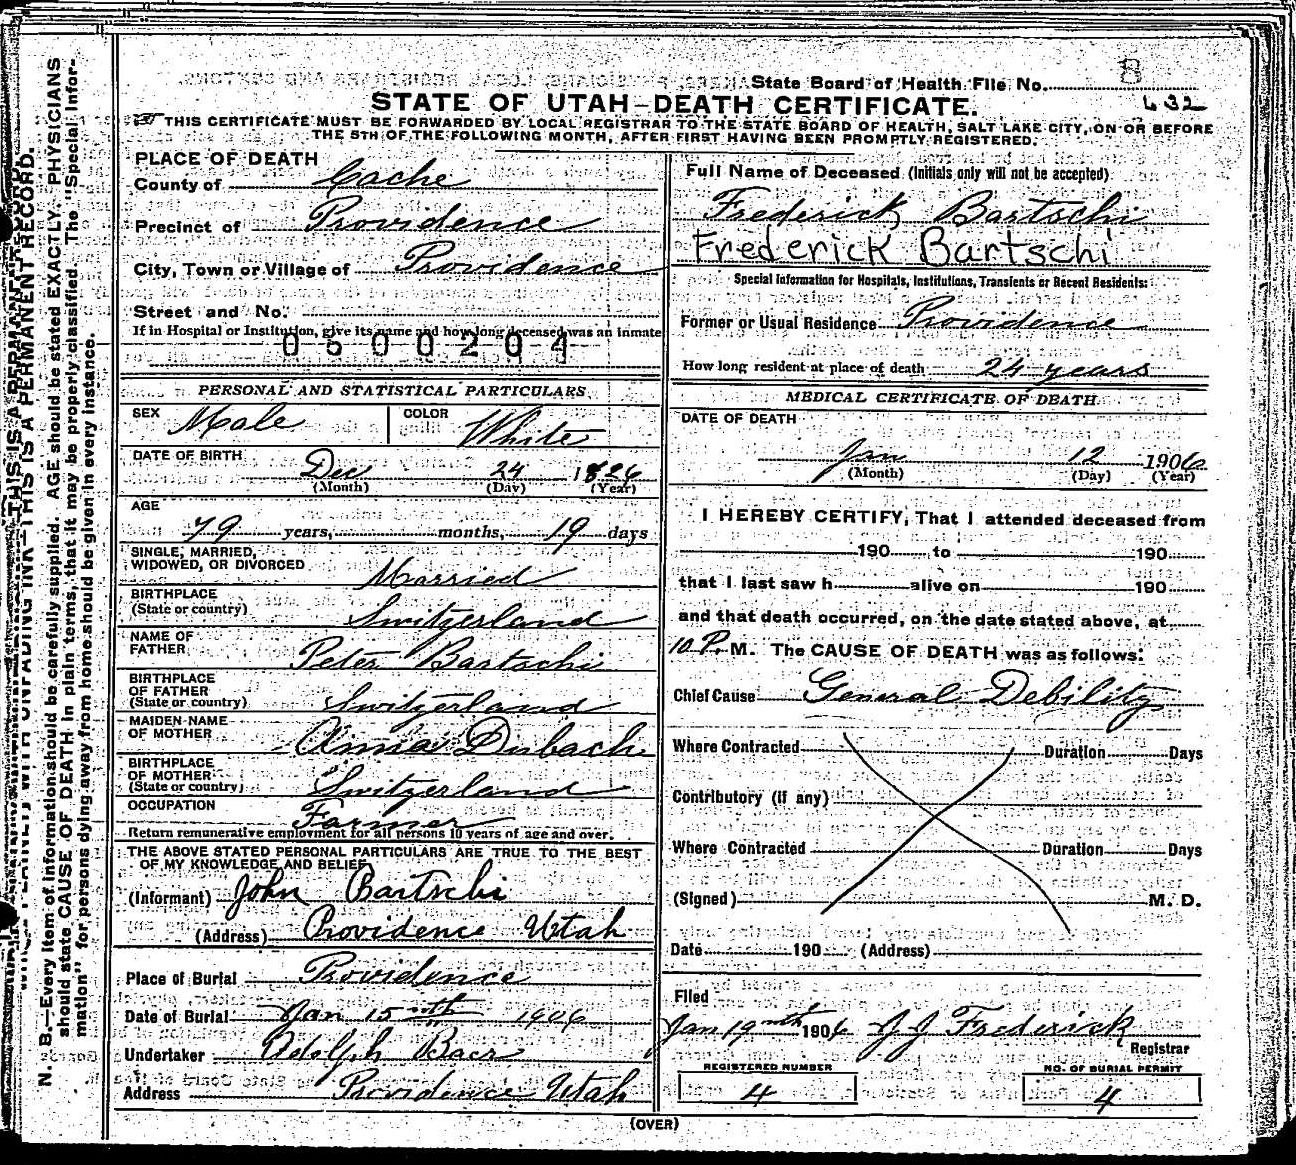 State Board of Health File No. 8
632
STATE OF UTAH—DEATH CERTIFICATE.
THIS CERTIFICATE MUST BE FORWARDED BY LOCAL REGISTRAR TO THE STATE BOARD OF HEALTH, SALT LAKE CITY, ON OR BEFORE
THE 5TH OF THE FOLLOWING MONTH, AFTER FIRST HAVING BEEN PROMPTLY REGISTERED.
PLACE OF DEATH
County of Cache
Precinct of Providence
City, Town or Village of Providence
Street and No.
If in Hospital or Institution, give its name and how long deceased was an inmate
0500204
PERSONAL AND STATISTICAL PARTICULARS
SEX Male COLOR White
DATE OF BIRTH Dec 24 1826
(Month) (Day) (Year)
AGE
79 years, months, 19 days
SINGLE, MARRIED,
WIDOWED, OR DIVORCED Married
BIRTHPLACE
(State or country) Switzerland
NAME OF
FATHER Peter Bartschi
BIRTHPLACE
OF FATHER
(State or country) Switzerland
MAIDEN NAME
OF MOTHER Anna Dubach
BIRTHPLACE
OF MOTHER
(State or country) Switzerland
OCCUPATION Farmer
Return remunerative employment for all persons 10 years of age and over.
THE ABOVE STATED PERSONAL PARTICULARS ARE TRUE TO THE BEST
OF MY KNOWLEDGE AND BELIEF
(Informant) John Bartschi
(Address) Providence Utah
Place of Burial Providence
Date of Burial Jan 15 th 1906
Undertaker Adolph Baer
Address Providence Utah
Full Name of Deceased (Initials only will not be accepted)
Frederick Bartschi
Frederick Bartschi
Special Information for Hospitals, Institutions, Transients or Recent Residents:
Former or Usual Residence Providence
How long resident at place of death 24 years
MEDICAL CERTIFICATE OF DEATH
DATE OF DEATH
Jan 12 1906
(Month) (Day) (Year)
I HEREBY CERTIFY, That I attended deceased from
190 to 190
that I last saw h alive on 190
and that death occurred, on the date stated above, at
10 P. M. The CAUSE OF DEATH was as follows:
Chief Cause General Debility
Where Contracted Duration Days
Contributory (if any)
Where Contracted Duration Days
(Signed) M. D.
Date 190 (Address)
Filed
Jan 19 th 1906 J J Frederick
Registrar
REGISTERED NUMBER NO. OF BURIAL PERMIT
4 4
(OVER)
THIS IS A PERMANENT RECORD.
N. B.—Every item of information should be carefully supplied. AGE should be stated EXACTLY. PHYSICIANS
should state CAUSE OF DEATH in plain terms, that it may be properly classified. The "Special Infor-
mation" for persons dying away from home should be given in every instance.